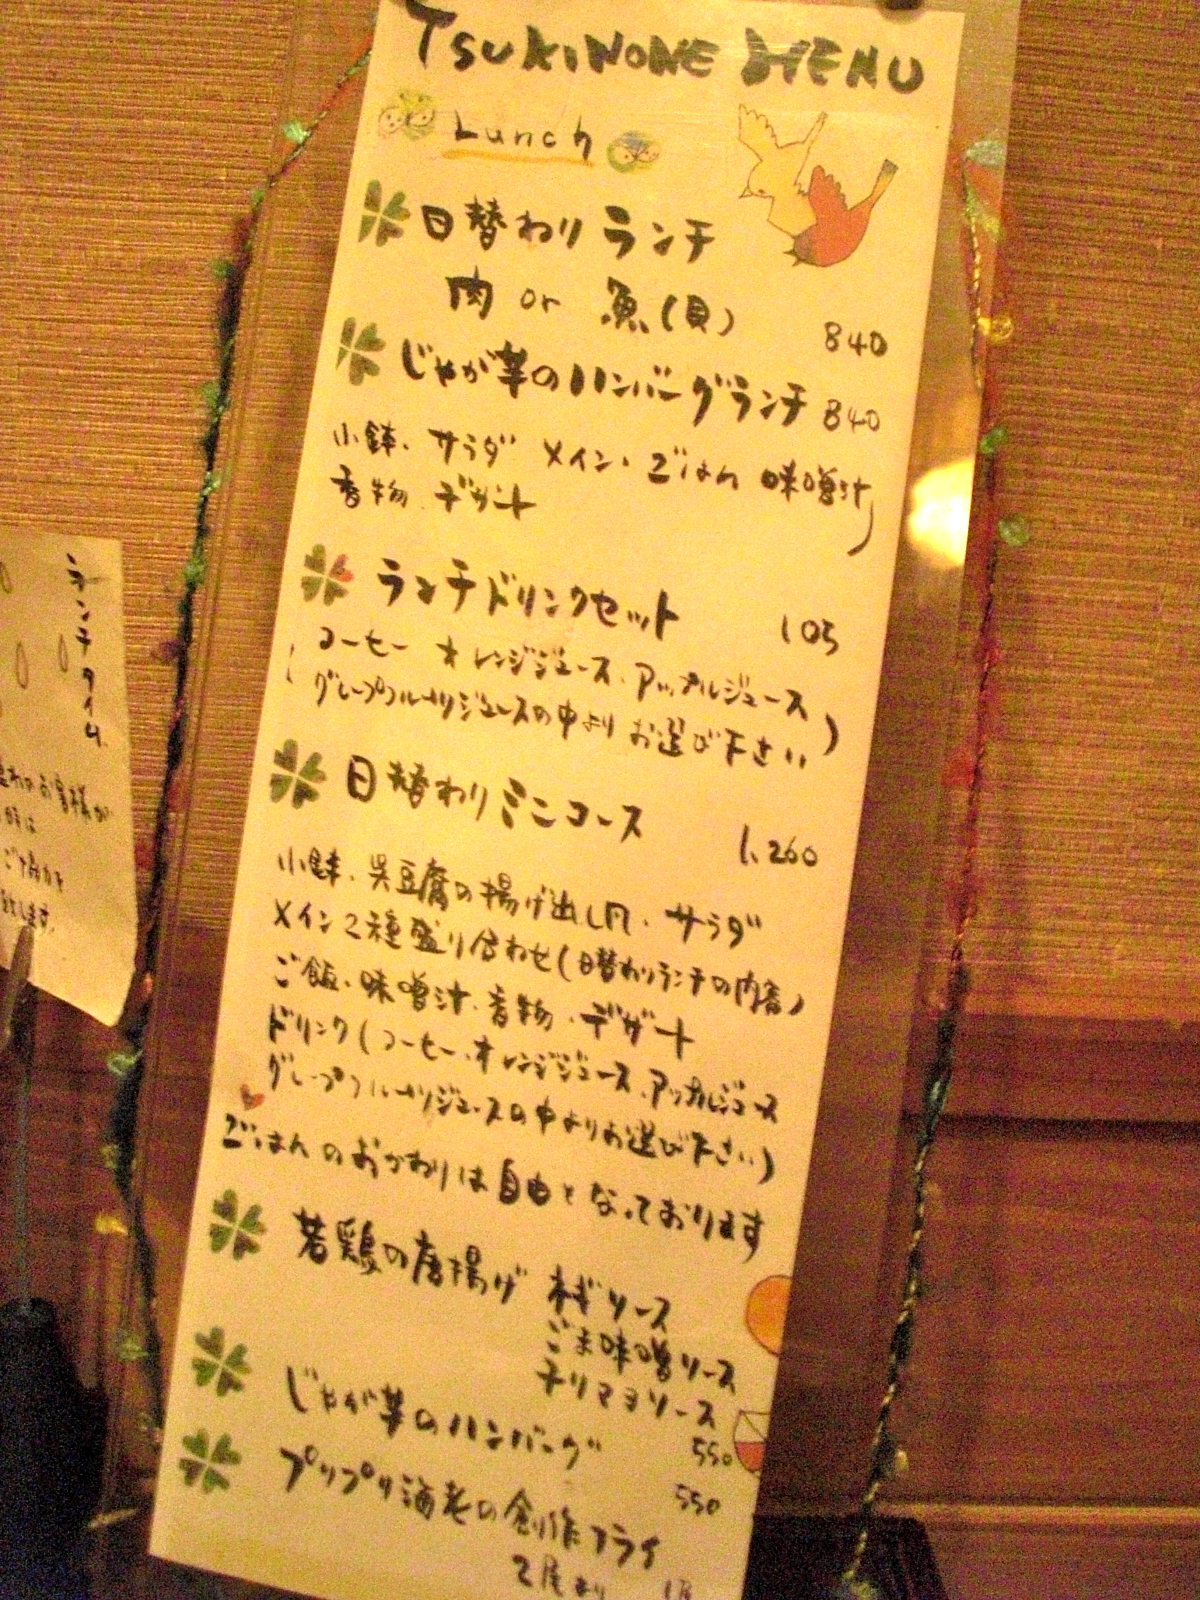 TSUKINONE MENU
Lunch
日替わりランチ
肉 or 魚(貝) 840
じゃが芋のハンバーグランチ 840
小鉢、サラダ メイン、ごはん 味噌汁
香物 デザート)
ランチドリンクセット 105
(コーヒー オレンジジュース、アップルジュース
グレープフルーツジュースの中よりお選び下さい)
日替わりミニコース 1,260
小鉢、呉豆腐の揚げ出し風、サラダ
メイン2種盛り合わせ(日替わりランチの内容)
ご飯、味噌汁、香物、デザート
ドリンク(コーヒー、オレンジジュース、アップルジュース
グレープフルーツジュースの中よりお選び下さい)
ごはんのおかわりは自由となっております
若鶏の唐揚げ ネギソース
ごま味噌ソース
チリマヨソース
550
じゃが芋のハンバーグ
550
プリプリ海老の創作フライ
2尾より
ランチタイム
お客様が
ご協力を
します。